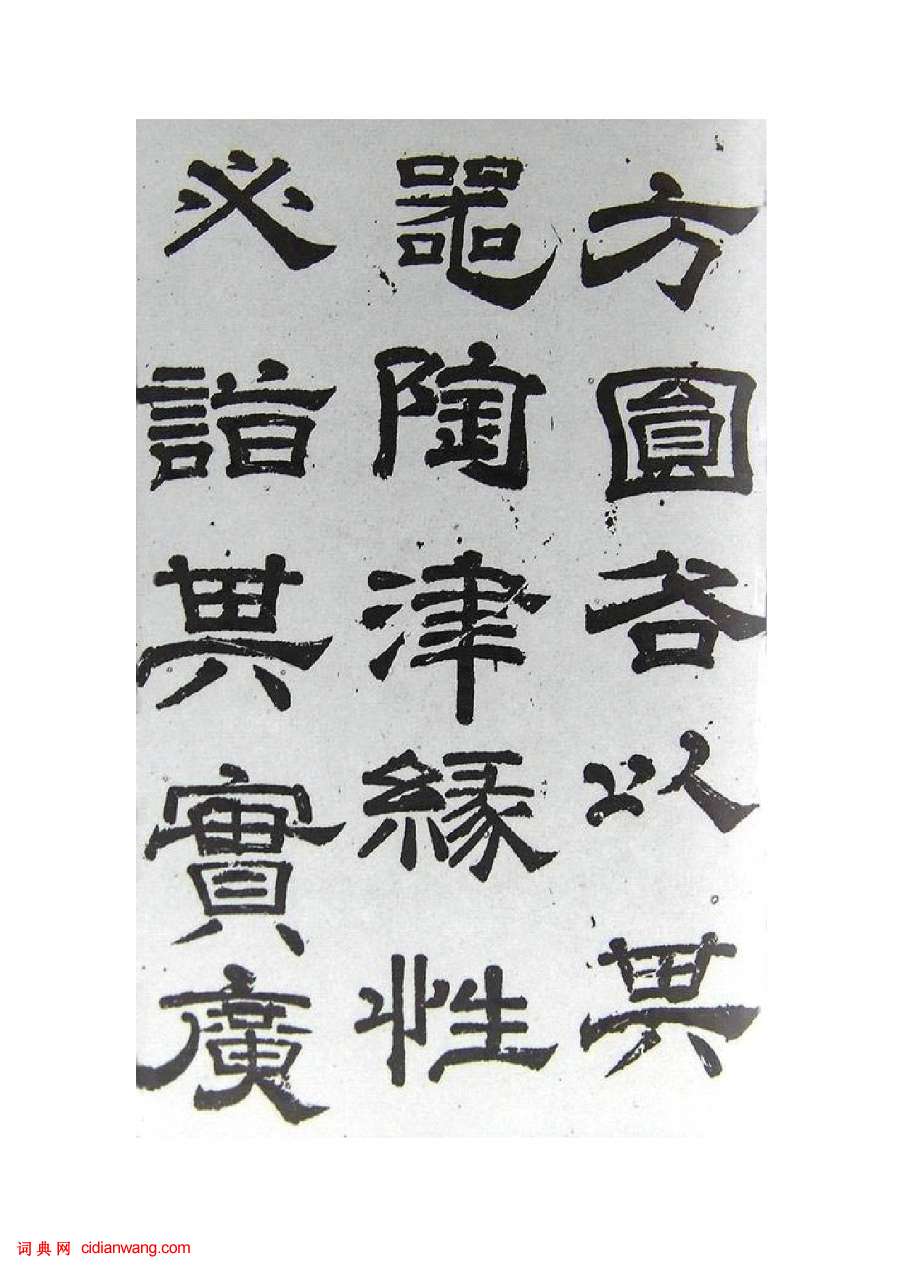 方圓各以其
器陶津緣性
必詣其實廣
词典网 cidianwang.com